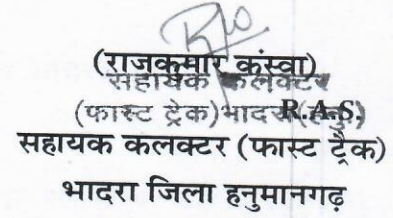 (राजकुमार कंस्वा)
सहायक कलक्टर
(फास्ट ट्रेक)भादरा R.A.S.
सहायक कलक्टर (फास्ट ट्रैक)
भादरा जिला हनुमानगढ़